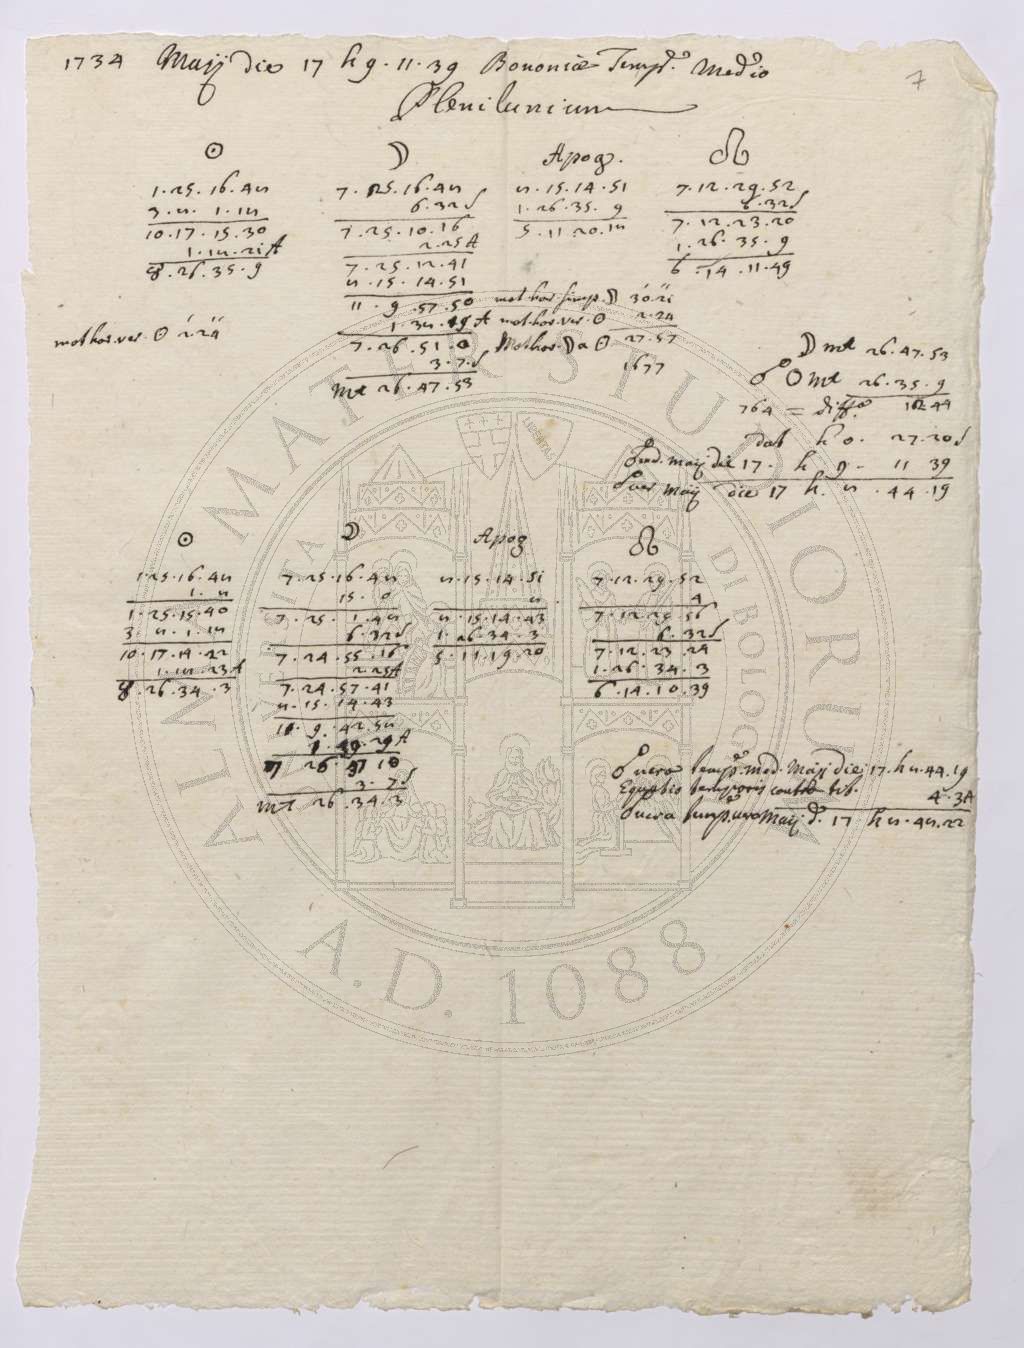 1734 Maij die 17 h 9 . 11 . 39 Bononiæ Temp.e Medio
7
Plenilunium
☉ ☽ Apog. ☊
1 . 25 . 16 . 48 7 . 25 . 16 . 48 8 . 15 . 14 . 51 7 . 12 . 29 . 52
3 . 8 . 1 . 18 6 . 32 S 1 . 26 . 35 . 9 6 . 32 S
10 . 17 . 15 . 30 7 . 25 . 10 . 16 5 . 11 . 20 . 18 7 . 12 . 23 . 20
1 . 18 . 21 A 2 . 25 A 1 . 26 . 35 . 9
♉ . 26 . 35 . 9 7 . 25 . 12 . 41 6 . 14 . 11 . 49
8 . 15 . 14 . 51
11 . 9 . 57 . 50 mot.hor.simp. ☽ 30 . 21
mot.hor.ver. ☉ 2 . 24 1 . 38 . 19 A mot.hor.ver. ☉ 2 . 24
7 . 26 . 51 . 0 Mot.hor. ☽ a ☉ 27 . 57
3 . 7 . S 1677
♏ 26 . 47 . 53
☽ ♏ 26 . 47 . 53
☍ ☉ ♏ 26 . 35 . 9
764 = diff.a 12 . 44
dat h 0 . 27 . 20 S
☍ med. Maij die 17 . h 9 . 11 39
☍ ver Maij die 17 h . 8 . 44 . 19
☉ ☽ Apog ☊
1 . 25 . 16 . 48 7 . 25 . 16 . 48 8 . 15 . 14 . 51 7 . 12 . 29 . 52
1 . 8 15 . 0 8 4
1 . 25 . 15 . 40 7 . 25 . 1 . 48 8 . 15 . 14 . 43 7 . 12 . 29 . 56
3 . 8 . 1 . 18 6 . 32 S 1 . 26 . 34 . 3 6 . 32 S
10 . 17 . 14 . 22 7 . 24 . 55 . 16 5 . 11 . 19 . 20 7 . 12 . 23 . 24
1 . 18 . 23 A 2 . 25 A 1 . 26 . 34 . 3
♉ . 26 . 34 . 3 7 . 24 . 57 . 41 6 . 14 . 10 . 39
8 . 15 . 14 . 43
11 . 9 . 42 . 58
1 . 39 . 29 A
7 26 . 37 10
3 . 7 S
♏ 26 . 34 . 3
☍ vera temp.e med. Maij die 17 . h 8 . 44 . 19
Equatio temporis contr.
4 . 3 A
☍ vera temp. vero Maij d. 17 h 8 . 48 . 22
ALMA MATER STUDIORUM
A.D. 1088
LIBERTAS